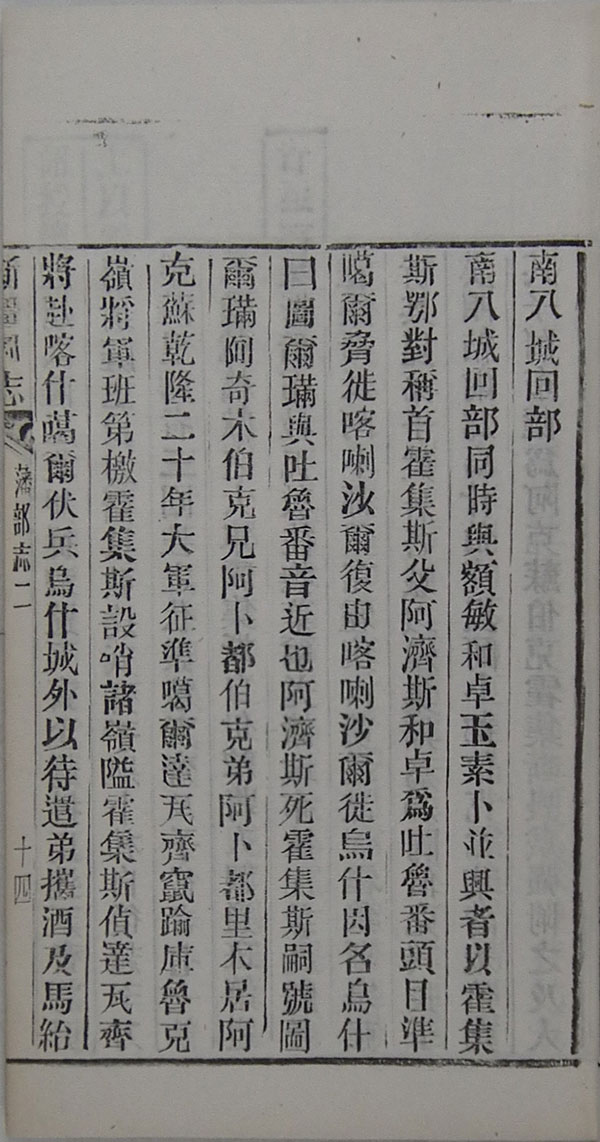 南八城回部
南八城回部同時與額敏和卓玉素卜並興者以霍集
斯鄂對稱首霍集斯父阿濟斯和卓爲吐魯番頭目準
噶爾脅徙喀喇沙爾復由喀喇沙爾徙烏什因名烏什
曰圖爾璊與吐魯番音近也阿濟斯死霍集斯嗣號圖
爾璊阿奇木伯克兄阿卜都伯克弟阿卜都里木居阿
克蘇乾隆二十年大軍征準噶爾達瓦齊竄踰庫魯克
嶺將軍班第檄霍集斯設哨諸嶺隘霍集斯偵達瓦齊
將赴喀什噶爾伏兵烏什城外以待遣弟攜酒及馬紿
新疆圖志 藩部志二 十四